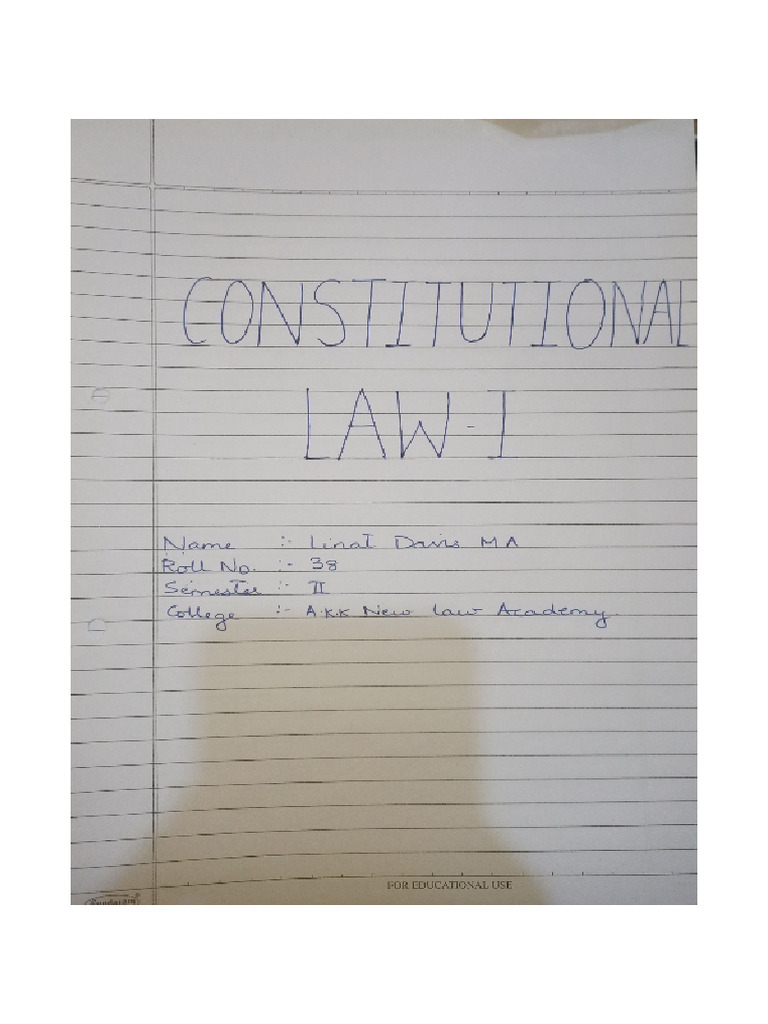 CONSTITUTIONAL
LAW-I
Name :- Linat Davis M A
Roll No. :- 38
Semester :- II
College :- A.K.K New Law Academy.
FOR EDUCATIONAL USE
Sundaram